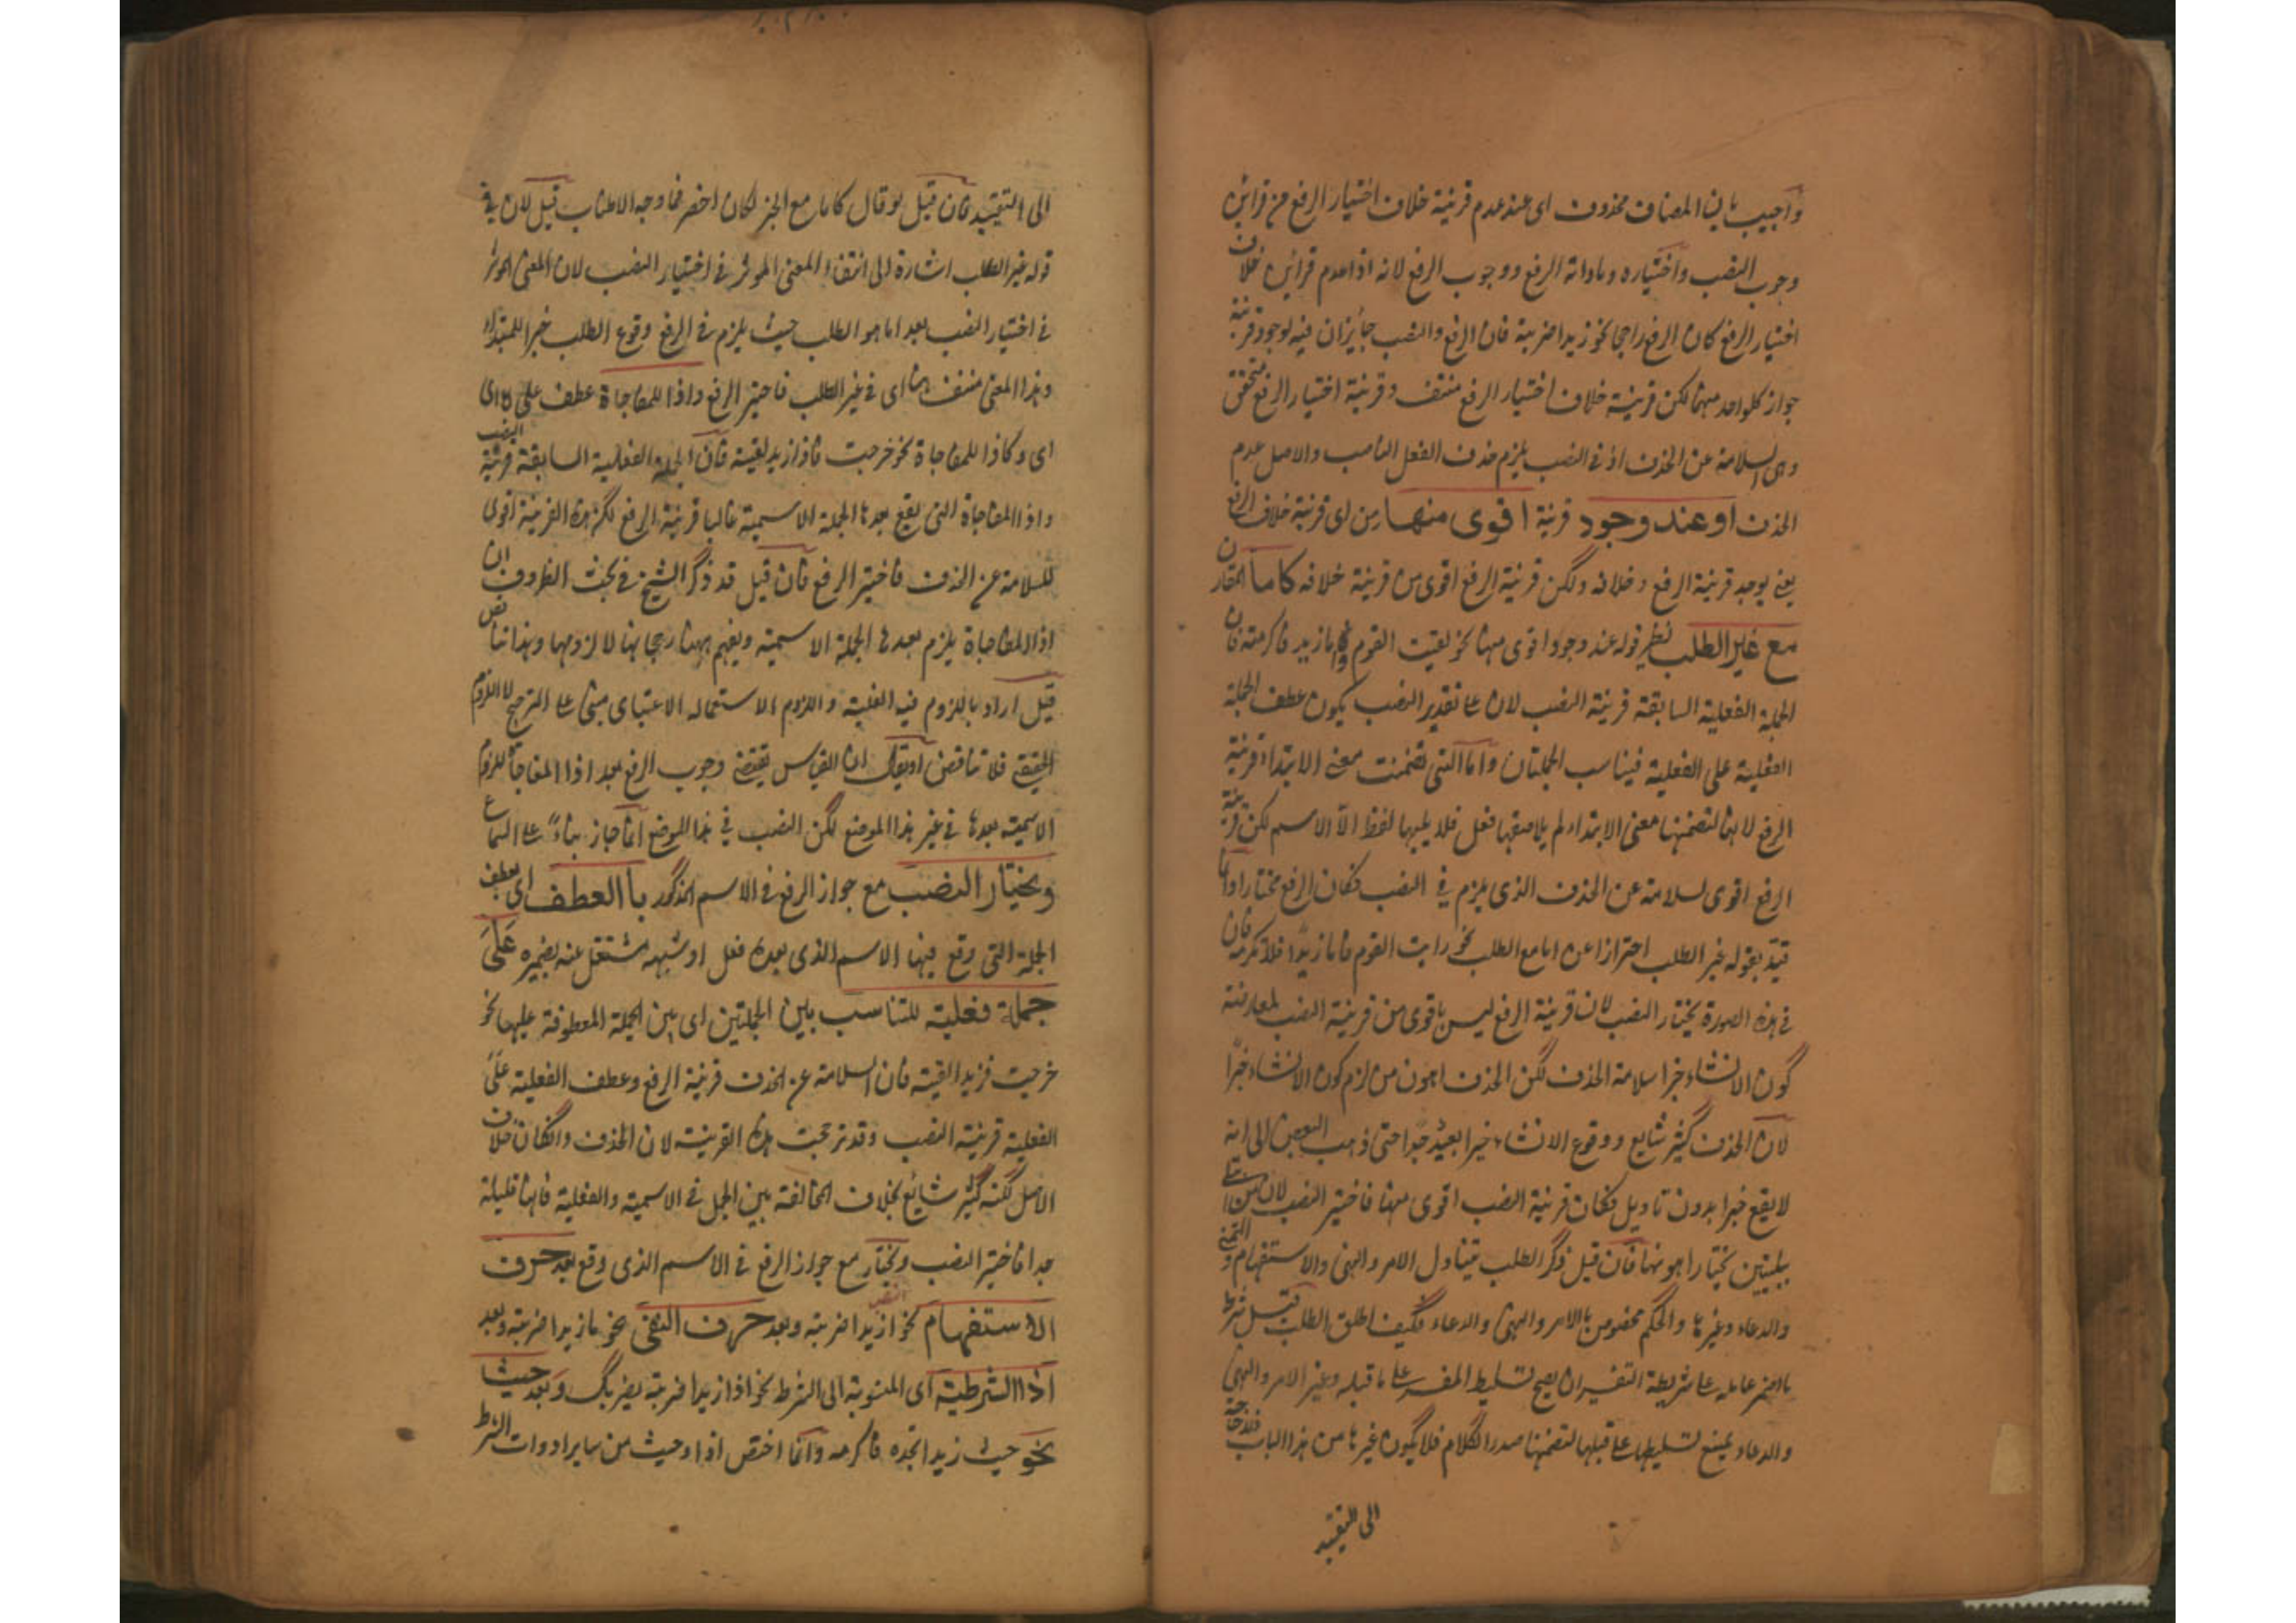 واجيب بان المضاف محذوف اى عند عدم قرينة خلاف اختيار الرفع من قرائن
وجوب النصب واختياره ومساواة الرفع ووجوب الرفع لانه اذا عدم قرائن خلاف
اختيار الرفع كان الرفع راجحا نحو زيد ضربته فان الرفع والنصب جائزان فيه لوجود قرينة
جواز كلواحد منهما لكن قرينة خلاف اختيار الرفع منتف وقرينة اختيار الرفع متحقق
وهى السلامة عن الحذف اذ فى النصب يلزم حذف الفعل الناصب والاصل عدم
الحذف او عند وجود قرينة اقوى منها من اى قرينة خلاف الرفع
يعنى يوجد قرينة الرفع وخلافه ولكن قرينة الرفع اقوى من قرينة خلافه كاما المقارن
مع غير الطلب نظير قوله عند وجود اقوى منها نحو لقيت القوم واما زيد فاكرمته فان
الجملة الفعلية السابقة قرينة النصب لان على تقدير النصب يكون عطف الجملة
الفعلية على الفعلية فيناسب الجملتان واما التى تضمنت معنى الابتداء قرينة
الرفع لانها لتضمنها معنى الابتداء لم يلاصقها فعل فلا يليها لفظ الا الاسم لكن قرينة
الرفع اقوى لسلامته عن الحذف الذى يلزم فى النصب فكان الرفع مختارا وانما
قيد بقوله غير الطلب احترازا عن اما مع الطلب نحو رايت القوم فاما زيدا فلا تكرمه فان
فى هذه الصورة يختار النصب لان قرينة الرفع ليس باقوى من قرينة النصب لمعارضة
كون الانشاء خبرا سلامة الحذف لكن الحذف اهون من لزم كون الانشاء خبرا
لان الحذف كثير شايع ووقوع الانشاء خبرا بعيد جدا حتى ذهب البعض الى انه
لا يقع خبرا بدون تاويل فكان قرينة النصب اقوى منها فاختير النصب لان من ابتلى
ببليتين يختار اهونهما فان قيل ذكر الطلب يتناول الامر والنهى والاستفهام والتمنى
والدعاء وغيرها والحكم مخصوص بالامر والنهى والدعاء فكيف اطلق الطلب قيل شرط
ما اضمر عامله على شريطة التفسير ان يصح تسليط المفسر على ما قبله وغير الامر والنهى
والدعاء ويمنع تسليطها على قبلها لتضمنها صدر الكلام فلا يكون غيرها من هذا الباب فلا حاجة
الى التقييد
الى التقييد فان قيل لو قال كاما مع الخبر لكان اخصر فما وجه الاطناب قيل لان فى
قوله غير الطلب اشارة الى انتفاء المعنى الموثر فى اختيار النصب لان المعنى الموثر
فى اختيار النصب بعد اما هو الطلب حيث يلزم فى الرفع وقوع الطلب خبرا للمبتداء
وهذا المعنى منتف ههنا اى فى غير الطلب فاختير الرفع واذا للمفاجاة عطف على كاما
اى وكاذا للمفاجاة نحو خرجت فاذا زيد لقيته فان الجملة الفعلية السابقة قرينة النصب
واذا المفاجاة التى يقع بعدها الجملة الاسمية غالبا قرينة الرفع لكن هذه القرينة اقوى
للسلامة عن الحذف فاختير الرفع فان قيل قد ذكر الشيخ فى بحث الظروف ان
اذا المفاجاة يلزم بعدها الجملة الاسمية ويفهم ههنا رجحانها لا لزومها وهذا تناقض
قيل اراد باللزوم فيه الغلبة واللزوم الاستعماله الاعتبارى مبنى على الترجيح لا اللزوم
الحقيقى فلا تناقض او يقال ان القياس يقتضى وجوب الرفع بعد اذا المفاجاة للزوم
الاسمية بعدها فى غير هذا الموضع لكن النصب فى هذا الموضع انما جاز بناء على السماع
ويختار النصب مع جواز الرفع فى الاسم المذكور با العطف اى بعطف
الجملة التى وقع فيها الاسم الذى بعده فعل او شبهه مشتغل عنه بضميره على
جملة فعلية للتناسب بين الجملتين اى بين الجملة المعطوفة عليها نحو
خرجت فزيدا لقيته فان السلامة عن الحذف قرينة الرفع وعطف الفعلية على
الفعلية قرينة النصب وقد ترجحت هذه القرينة لان الحذف وانكان خلاف
الاصل لكنه كثير شايع بخلاف المخالفة بين الجمل فى الاسمية والفعلية فانها قليلة
جدا فاختير النصب ويختار النصب مع جواز الرفع فى الاسم الذى وقع بعد حرف
الاستفهام نحو ازيدا ضربته وبعد حرف النفى نحو ما زيدا ضربته وبعد
اذا الشرطية اى المنسوبة الى الشرط نحو اذا زيدا ضربته يضربك وبعد حيث
نحو حيث زيدا تجده فاكرمه وانما اختص اذا وحيث من ساير ادوات الشرط